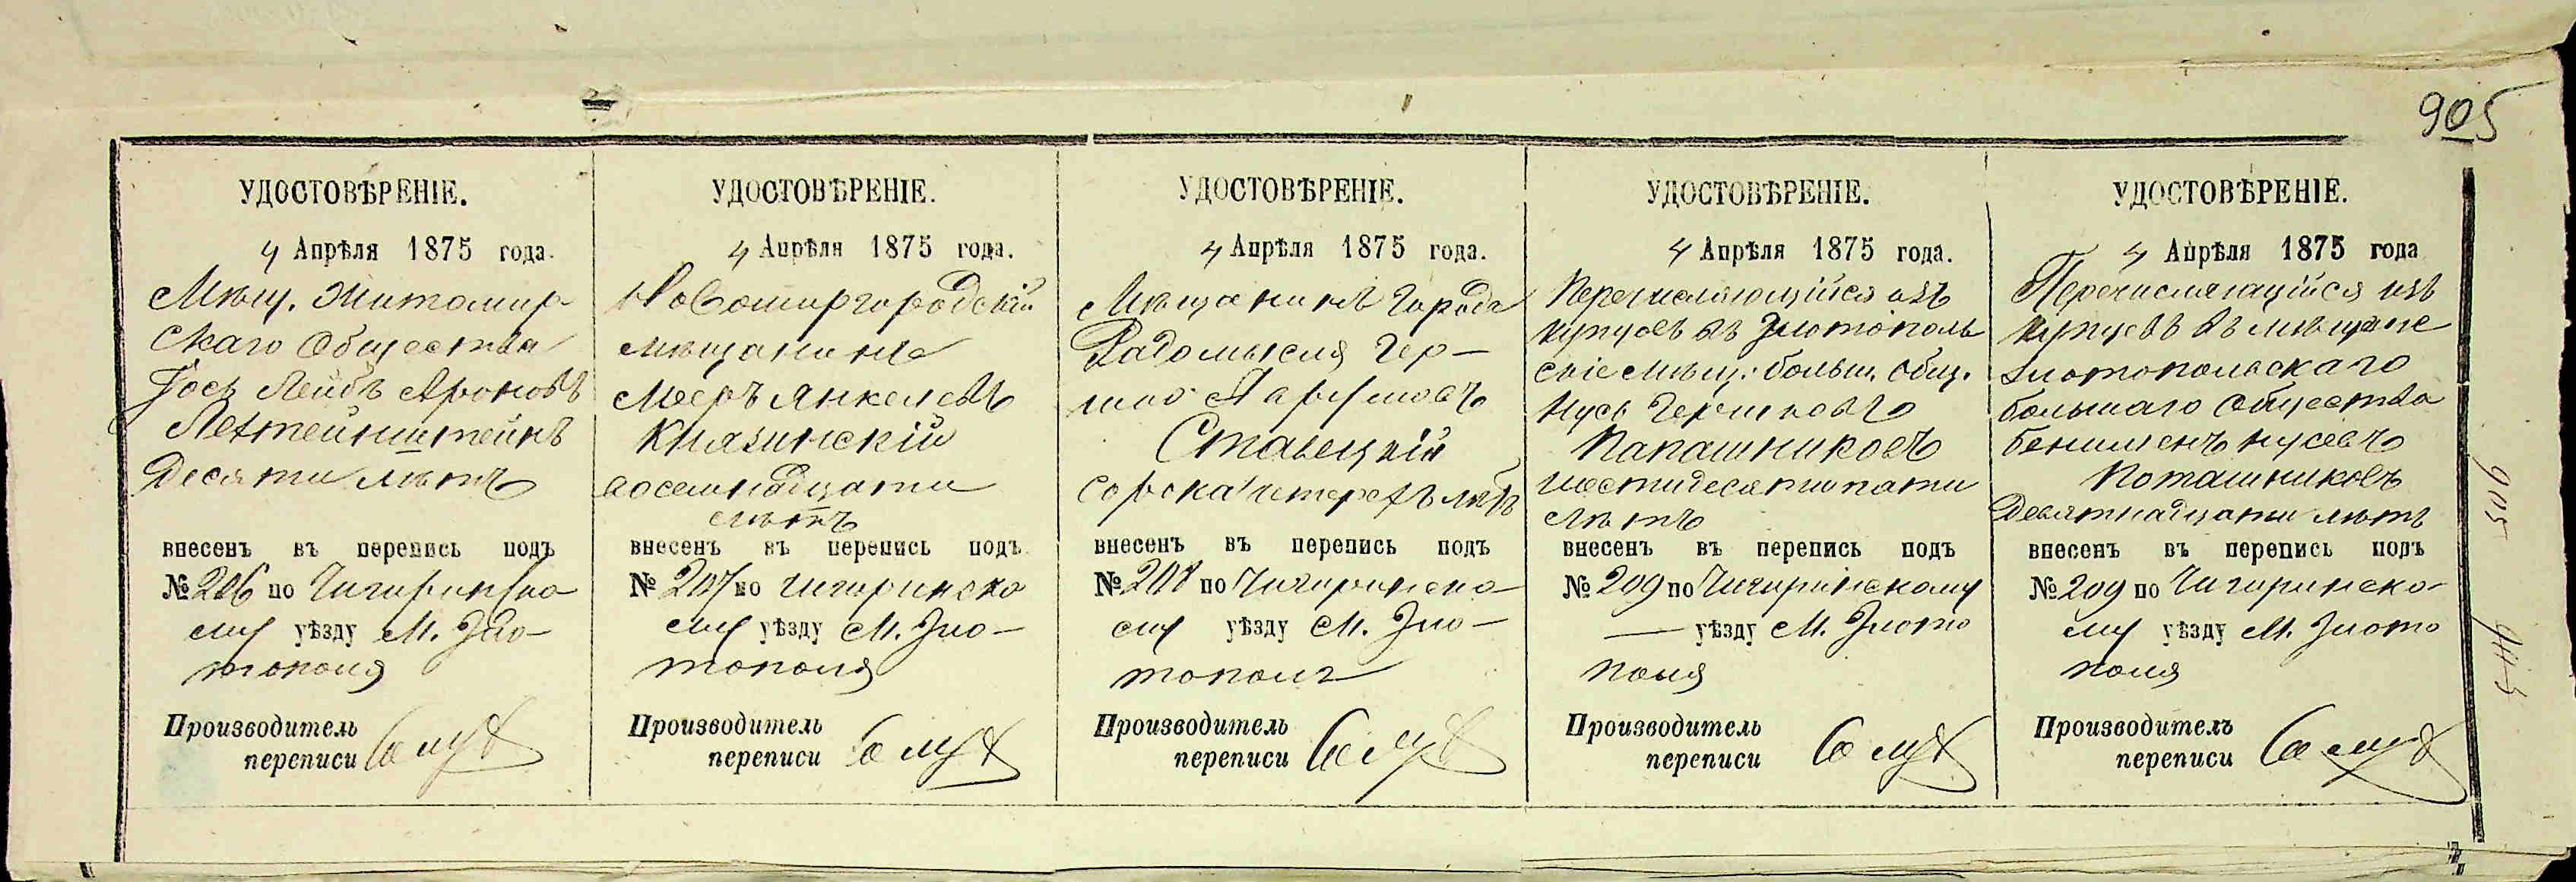 905
УДОСТОВѢРЕНІЕ.
4 Апрѣля 1875 года.
Мѣщ. Житомир-
скаго Общества
Іось Лейбъ Ароновъ
Десяти лѣтъ
внесенъ въ перепись подъ
№ 206 по Чигиринско
му уѣзду М. Зло-
тополя
Производитель
переписи
УДОСТОВѢРЕНІЕ.
4 Апрѣля 1875 года.
Новомиргородскій
мѣщанинъ
Мееръ Янкелевъ
Князинскій
восемнадцати
лѣтъ
внесенъ въ перепись подъ
№ 207 по Чигиринско
му уѣзду М. Зло-
тополя
Производитель
переписи
УДОСТОВѢРЕНІЕ.
4 Апрѣля 1875 года.
Мѣщанинъ города
Радомысля Гер-
шко
Ставецкій
сорока четырехъ лѣтъ
внесенъ въ перепись подъ
№ 208 по Чигиринско-
му уѣзду М. Зло-
тополя
Производитель
переписи
УДОСТОВѢРЕНІЕ.
4 Апрѣля 1875 года.
Перечисляющійся изъ
купцовъ въ Златополь
скіе мѣщ. больш. общ.
Нусь Гершковъ
Папашниковъ
шестидесяти пяти
лѣтъ
внесенъ въ перепись подъ
№ 209 по Чигиринскому
— уѣзду М. Злото
поля
Производитель
переписи
УДОСТОВѢРЕНІЕ.
4 Апрѣля 1875 года
Перечисляющійся изъ
купцовъ въ мѣщане
Злотопольскаго
большаго Общества
Беніаменъ Нусевъ
Поташниковъ
Девятнадцати лѣтъ
внесенъ въ перепись подъ
№ 209 по Чигиринско-
му уѣзду М. Злото
поля
Производитель
переписи
905